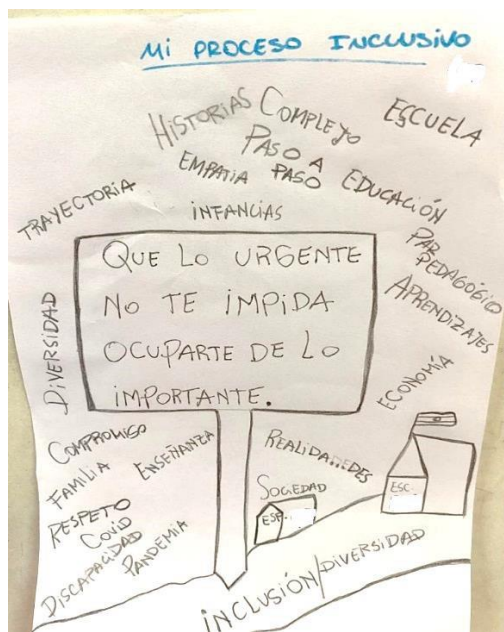 Mi PROCESO INCLUSIVO
HISTORIAS
COMPLEJO
ESCUELA
PASO A
PASO
EMPATIA
EDUCACIÓN
TRAYECTORIA
INFANCIAS
PAR
PEDAGÓGICO
APRENDIZAJES
QUE LO URGENTE
NO TE IMPIDA
OCUPARTE DE LO
IMPORTANTE.
DIVERSIDAD
ECONOMÍA
COMPROMISO
FAMILIA
ENSEÑANZA
REALIDADES
SOCIEDAD
ESC.
RESPETO
COVID
DISCAPACIDAD
PANDEMIA
INCLUSIÓN/DIVERSIDAD